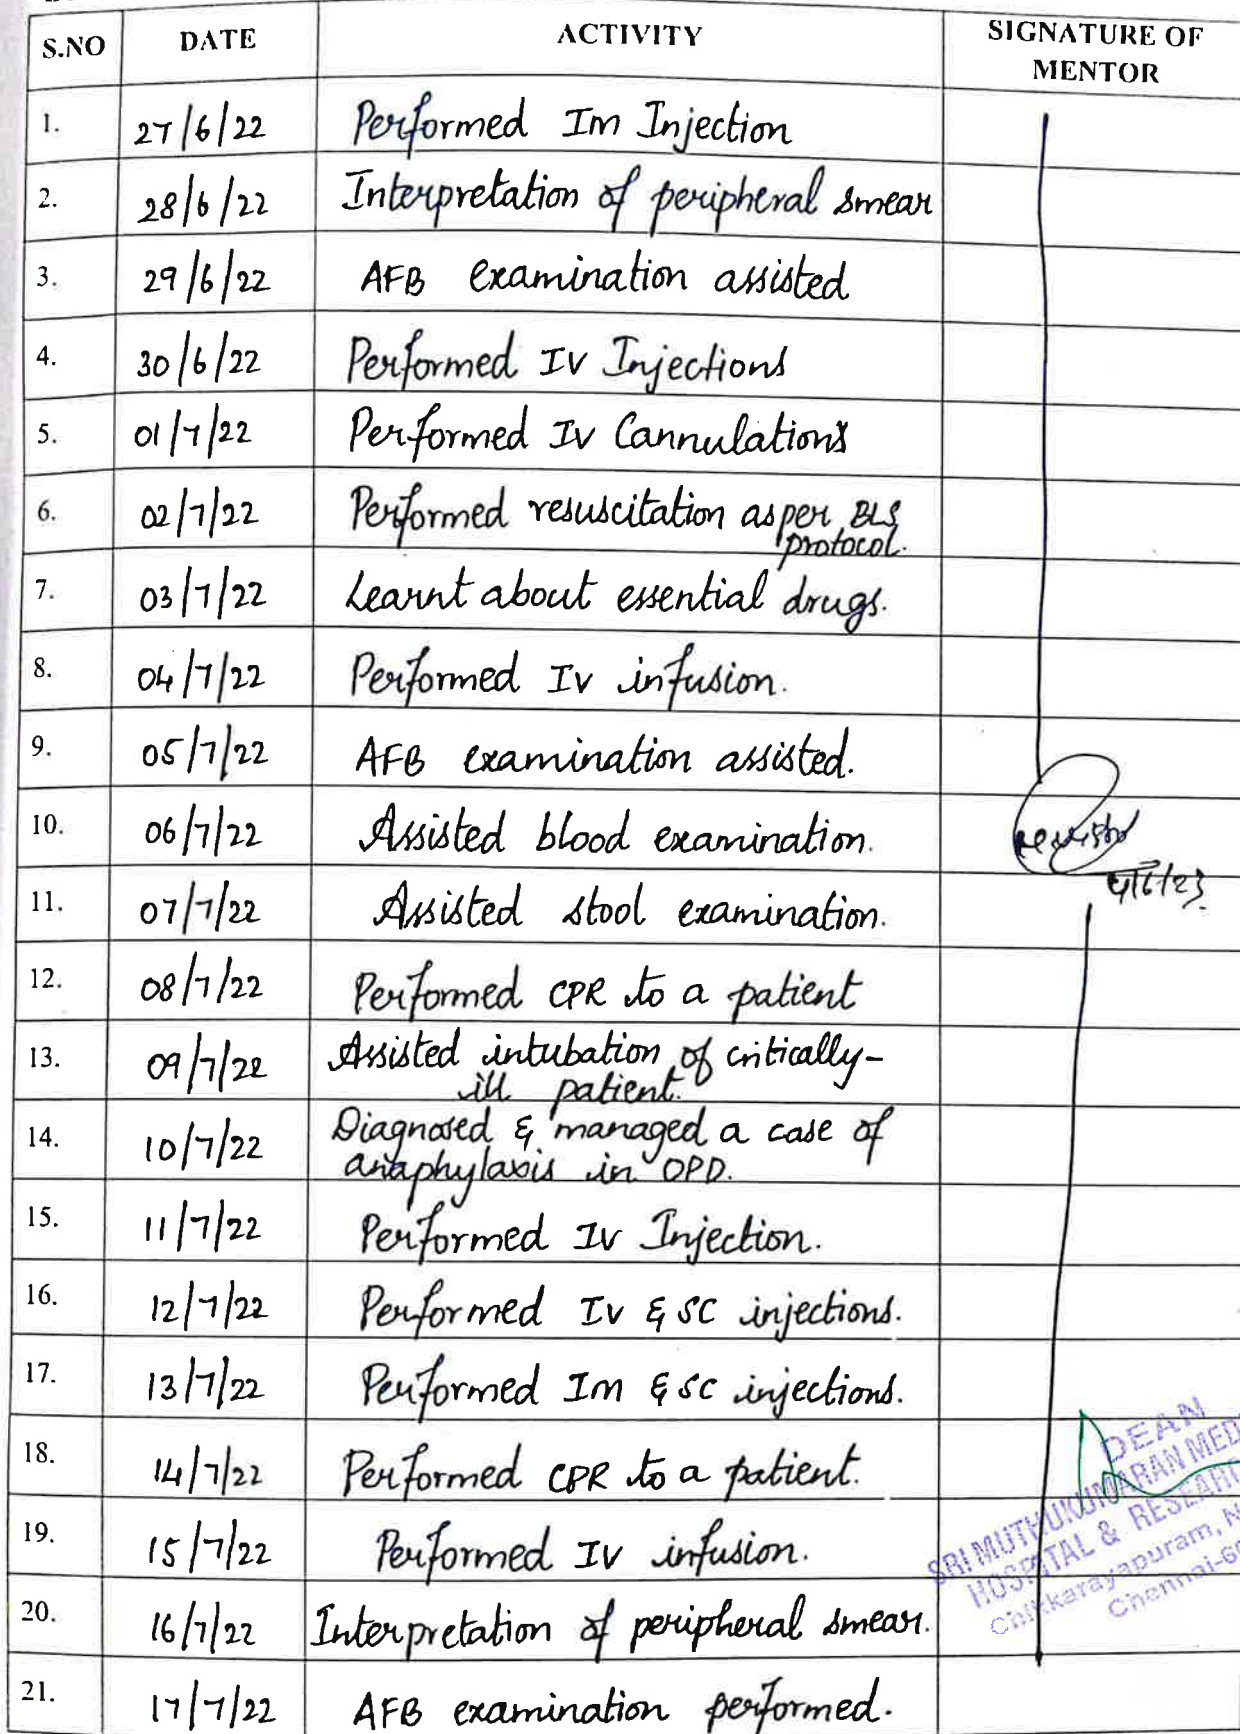 S.NO DATE ACTIVITY SIGNATURE OF
MENTOR
1. 27/6/22 Performed Im Injection
2. 28/6/22 Interpretation of peripheral smear
3. 29/6/22 AFB examination assisted
4. 30/6/22 Performed IV Injections
5. 01/7/22 Performed IV Cannulations
6. 02/7/22 Performed resuscitation as per BLS
protocol.
7. 03/7/22 Learnt about essential drugs.
8. 04/7/22 Performed IV infusion.
9. 05/7/22 AFB examination assisted.
10. 06/7/22 Assisted blood examination.
11. 07/7/22 Assisted stool examination.
12. 08/7/22 Performed CPR to a patient
13. 09/7/22 Assisted intubation of critically-
ill patient.
14. 10/7/22 Diagnosed & managed a case of
anaphylaxis in OPD.
15. 11/7/22 Performed IV Injection.
16. 12/7/22 Performed IV & SC injections.
17. 13/7/22 Performed Im & SC injections.
18. 14/7/22 Performed CPR to a patient.
19. 15/7/22 Performed IV infusion.
20. 16/7/22 Interpretation of peripheral smear.
21. 17/7/22 AFB examination performed.
DEAN
SRI MUTHUKUMARAN MED
HOSPITAL & RESEAR
Chikkarayapuram, N
Chennai-60